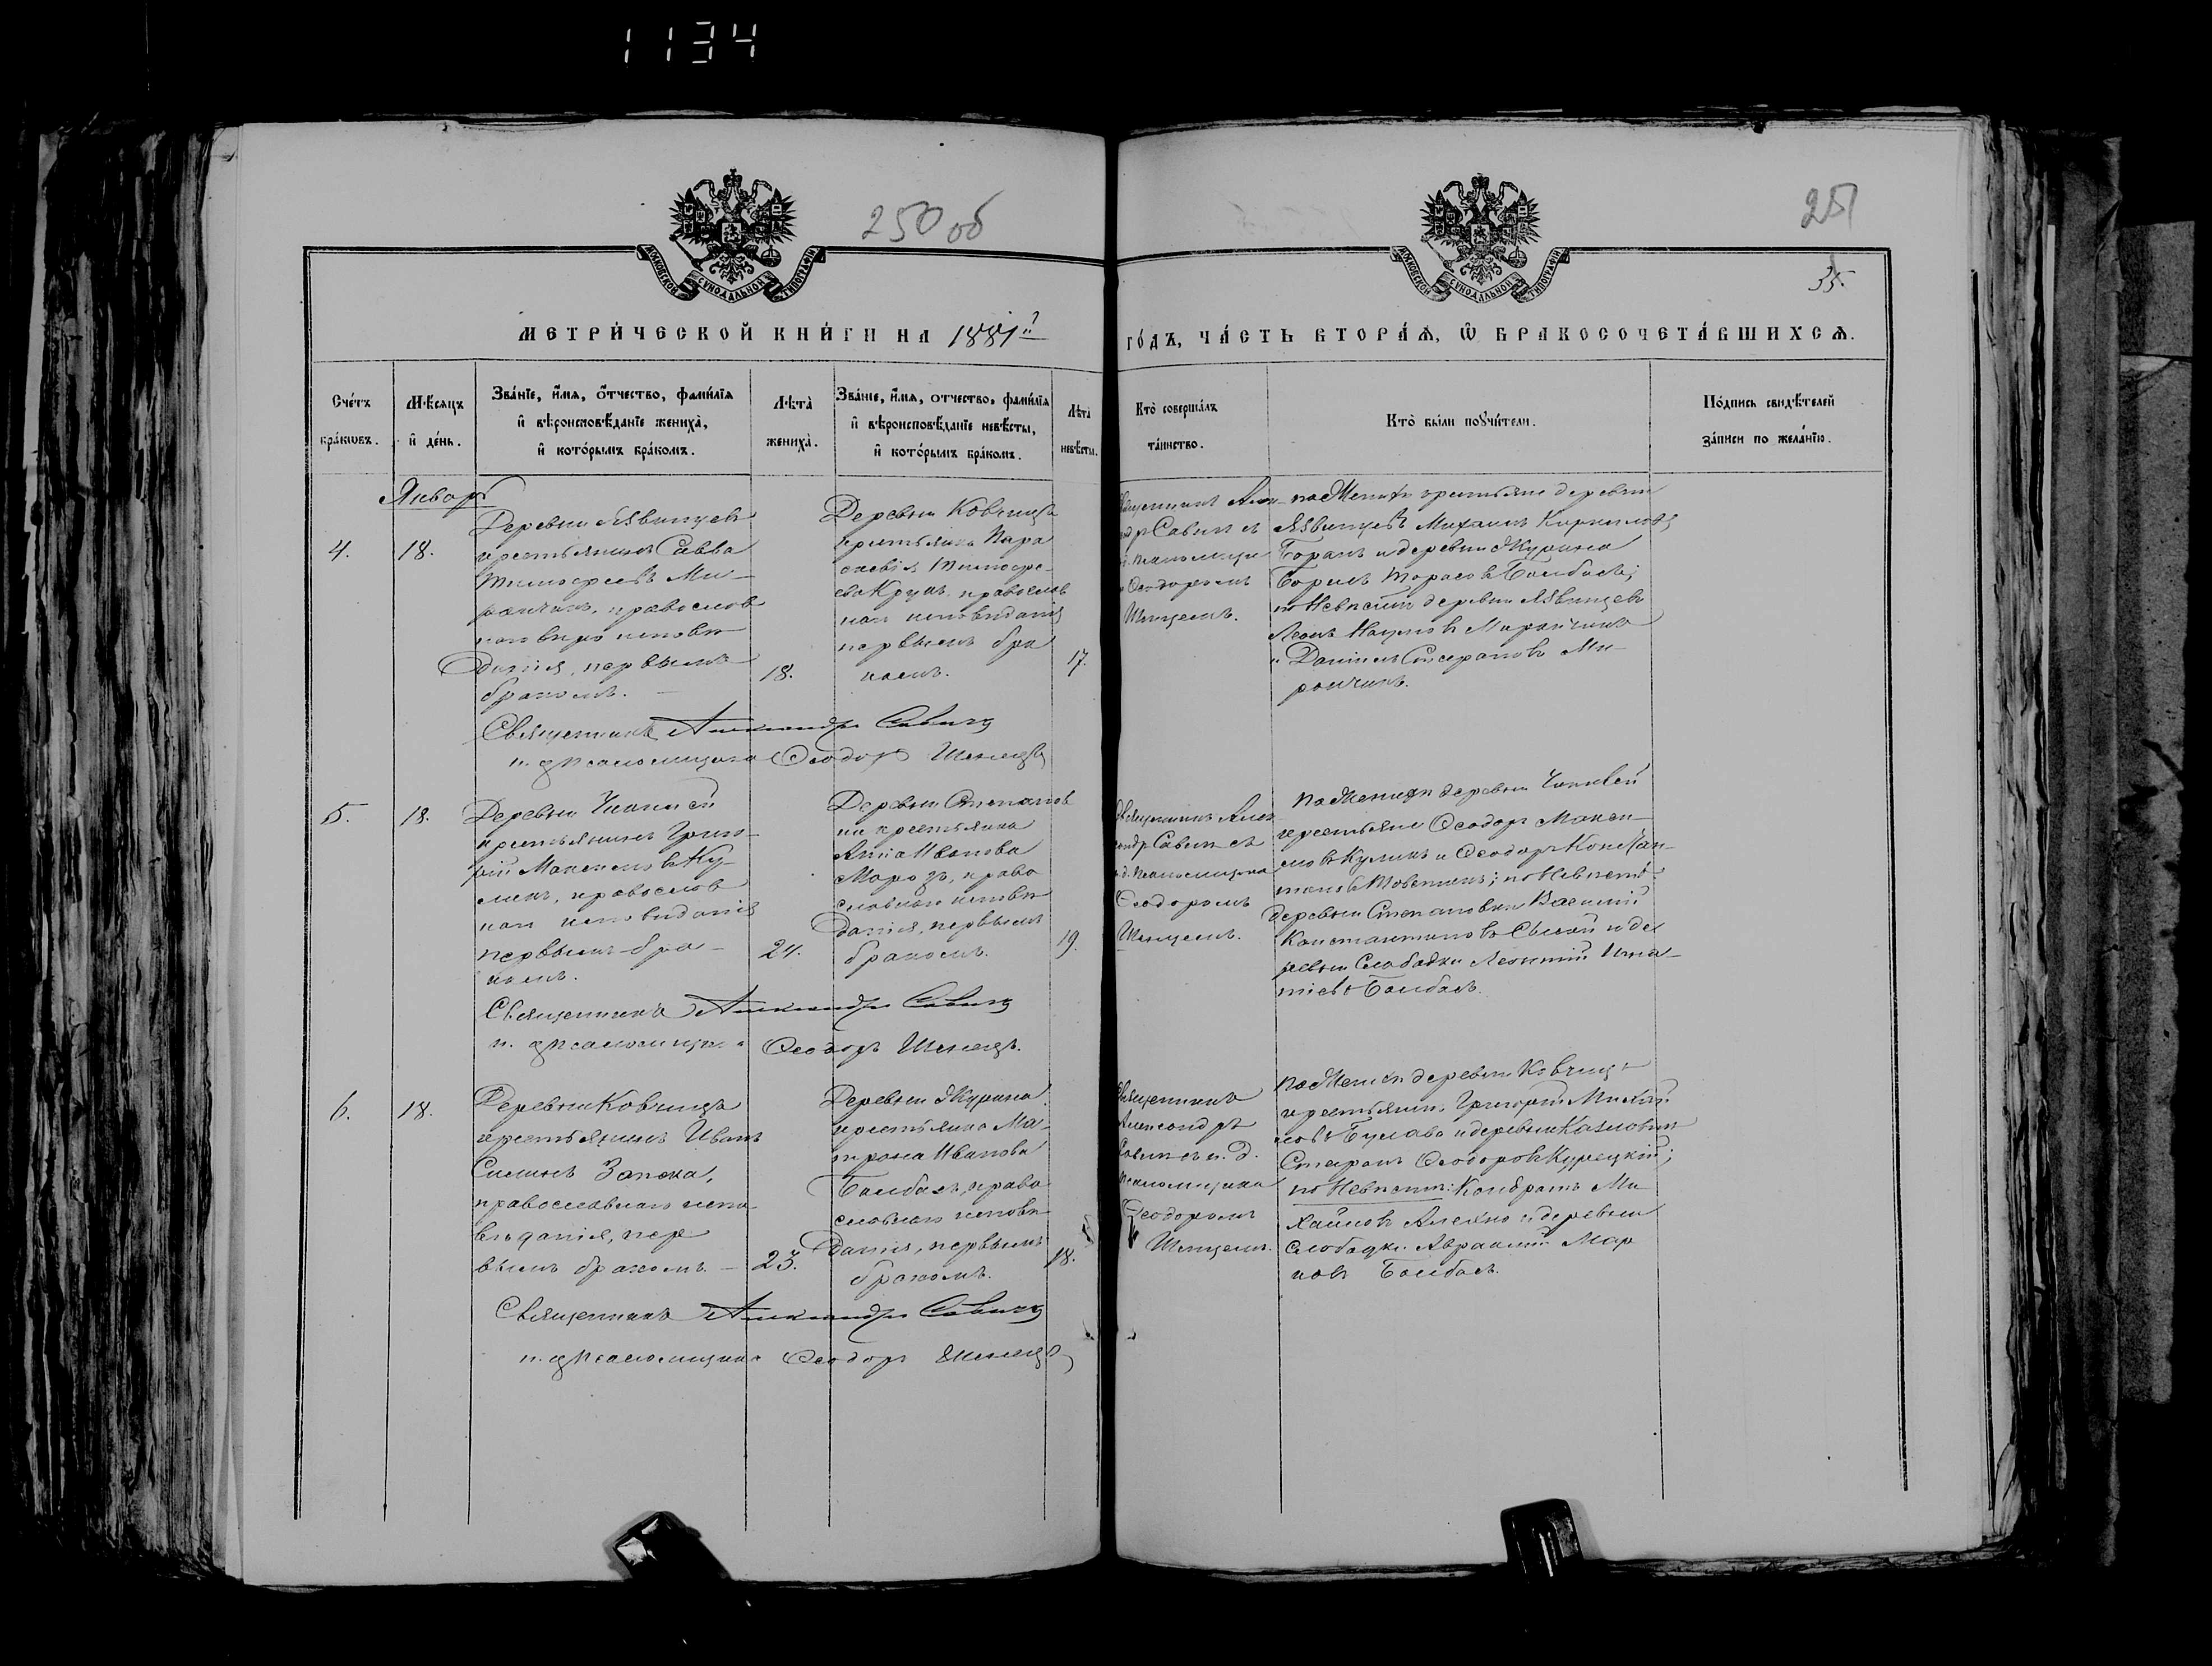 1134
250 об
251
35.
МОСКОВСКОЙ СѴНОДАЛЬНОЙ ТИПОГРАФІИ
МОСКОВСКОЙ СѴНОДАЛЬНОЙ ТИПОГРАФІИ
МЕТРИ́ЧЕСКОЙ КНИ́ГИ НА 1881й
ГО́ДЪ, ЧА́СТЬ ВТОРА́Я, Ѿ БРАКОСОЧЕТА́ВШИХСЯ.
Сче́тъ
бра́кωвъ.
Мѣ́сяцъ
и҆ де́нь.
Зва́нїе, и҆́мя, о҆́тчество, фами́лїя
и҆ вѣроисповѣ́данїе жениха̀,
и҆ кото́рымъ бра́комъ.
Лѣта̀
жениха̀.
Зва́нїе, и҆́мя, о́тчество, фами́лїя
и҆ вѣроисповѣ́данїе невѣ́сты,
и҆ кото́рымъ бра́комъ.
Лѣта̀
невѣ́сты.
Кто̀ соверша́лъ
та́инство.
Кто̀ бы́ли порꙋчи́тели.
По́дпись свидѣ́телей
за́писи по жела́нїю.
Январь
4.
18.
Деревни
крестьянинъ Савва
Тимофеевъ Ми-
рончикъ, православ
наго
данія, первымъ
бракомъ.
18.
Деревни Ковчицъ
крестьянка Пара
скевія Тимофе-
ева Крукъ, православ
наго исповѣданія
первымъ бра
комъ.
17.
Савичъ съ
Ѳеодоромъ
Шенцемъ.
по Женихѣ крестьяне деревни
Михаилъ Кирилловъ
Боранъ и деревни Журинa
Борисъ Тарасовъ Бамбаль;
по Невѣстѣ деревни
Леонъ Наумовъ Мирончикъ
и Даниилъ Стефановъ Ми-
рончикъ.
Священникъ Александръ Савичъ
и. д. псаломщика Ѳеодоръ Шенецъ
5.
18.
Деревни
крестьянинъ Григо-
рій Максимовъ Ку-
ликъ, православ
наго исповѣданія
первымъ бра-
комъ.
24.
Деревни Степанов
ки крестьянка
Анна Иванова
Марозъ, право
славнаго исповѣ
данія, первымъ
бракомъ.
19.
Священникъ Алек
сандръ Савичъ съ
и. д. псаломщика
Ѳеодоромъ
Шенцемъ.
по Женихѣ деревни
крестьяне Ѳеодоръ Макси-
мовъ Куликъ и Ѳеодоръ Констан-
тиновъ; по Невѣстѣ
деревни Степановки Василій
Константиновъ и де
ревни Слободки Леонтій Игна-
тіевъ Бамбаль.
Священникъ Александръ Савичъ
и. д. псаломщика Ѳеодоръ Шенецъ.
6.
18.
Деревни Ковчицъ
крестьянинъ Иванъ
Силинъ Запека,
православнаго испо-
вѣданія, пер
вымъ бракомъ.
23.
Деревни Журина
крестьянка Ма-
трона Иванова
Бамбаль, право
славнаго исповѣ
данія, первымъ
бракомъ.
18.
Священникъ
Александръ
Савичъ съ и. д.
псаломщика
Ѳеодоромъ
Шенцемъ.
по Женихѣ деревни Ковчицъ
крестьянинъ Григорій Михай
ловъ Булава и деревни
Стефанъ Ѳеодоровъ Курецкій;
по Невѣстѣ: Кондратъ Ми
хайловъ и деревни
Слободки Авраамій Мар
ковъ Бамбаль.
Священникъ Александръ Савичъ
и. д. псаломщика Ѳеодоръ Шенецъ